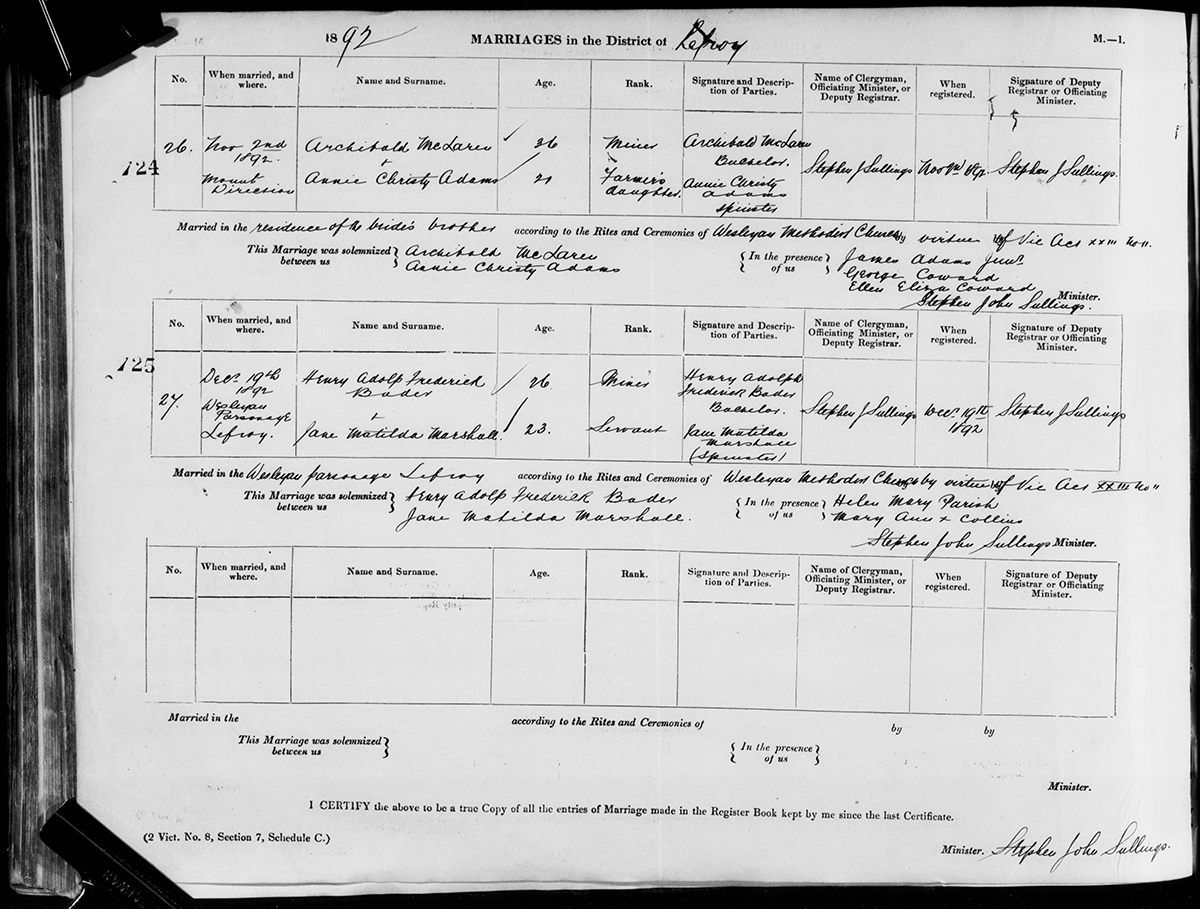 1892 MARRIAGES in the District of Lefroy M.—1.
No. When married, and where. Name and Surname. Age. Rank. Signature and Description of Parties. Name of Clergyman, Officiating Minister, or Deputy Registrar. When registered. Signature of Deputy Registrar or Officiating Minister.
724
26. Nov 2nd 1892. Mount Direction
Archibald McLaren + Annie Christy Adams
26 21
Miner Farmer's daughter.
Archibald McLaren Bachelor. Annie Christy Adams Spinster
Stephen J Sullings Nov 1892. Stephen J Sullings.
Married in the residence of the bride's brother according to the Rites and Ceremonies of Wesleyan Methodist Church by virtue of Vic Act XXIII No 11.
This Marriage was solemnized between us Archibald McLaren Annie Christy Adams
In the presence of us James Adams Junr George Coward Ellen Eliza Coward
Stephen John Sullings. Minister.
No. When married, and where. Name and Surname. Age. Rank. Signature and Description of Parties. Name of Clergyman, Officiating Minister, or Deputy Registrar. When registered. Signature of Deputy Registrar or Officiating Minister.
725
27. Decr 19th 1892 Wesleyan Parsonage Lefroy.
Henry Adolf Frederick Bader + Jane Matilda Marshall.
26 23.
Miner Servant
Henry Adolph Fredrick Bader Bachelor. Jane Matilda Marshall (Spinster)
Stephen J Sullings Decr 19th 1892 Stephen J Sullings
Married in the Wesleyan parsonage Lefroy according to the Rites and Ceremonies of Wesleyan Methodist Church by virtue of Vic Act XXIII No 11
This Marriage was solemnized between us Henry Adolf Frederick Bader Jane Matilda Marshall.
In the presence of us Helen Mary Parish Mary Ann x Collins
Stephen John Sullings Minister.
No. When married, and where. Name and Surname. Age. Rank. Signature and Description of Parties. Name of Clergyman, Officiating Minister, or Deputy Registrar. When registered. Signature of Deputy Registrar or Officiating Minister.
Married in the according to the Rites and Ceremonies of by by
This Marriage was solemnized between us In the presence of us
Minister.
I CERTIFY the above to be a true Copy of all the entries of Marriage made in the Register Book kept by me since the last Certificate.
(2 Vict. No. 8, Section 7, Schedule C.)
Minister. Stephen John Sullings.